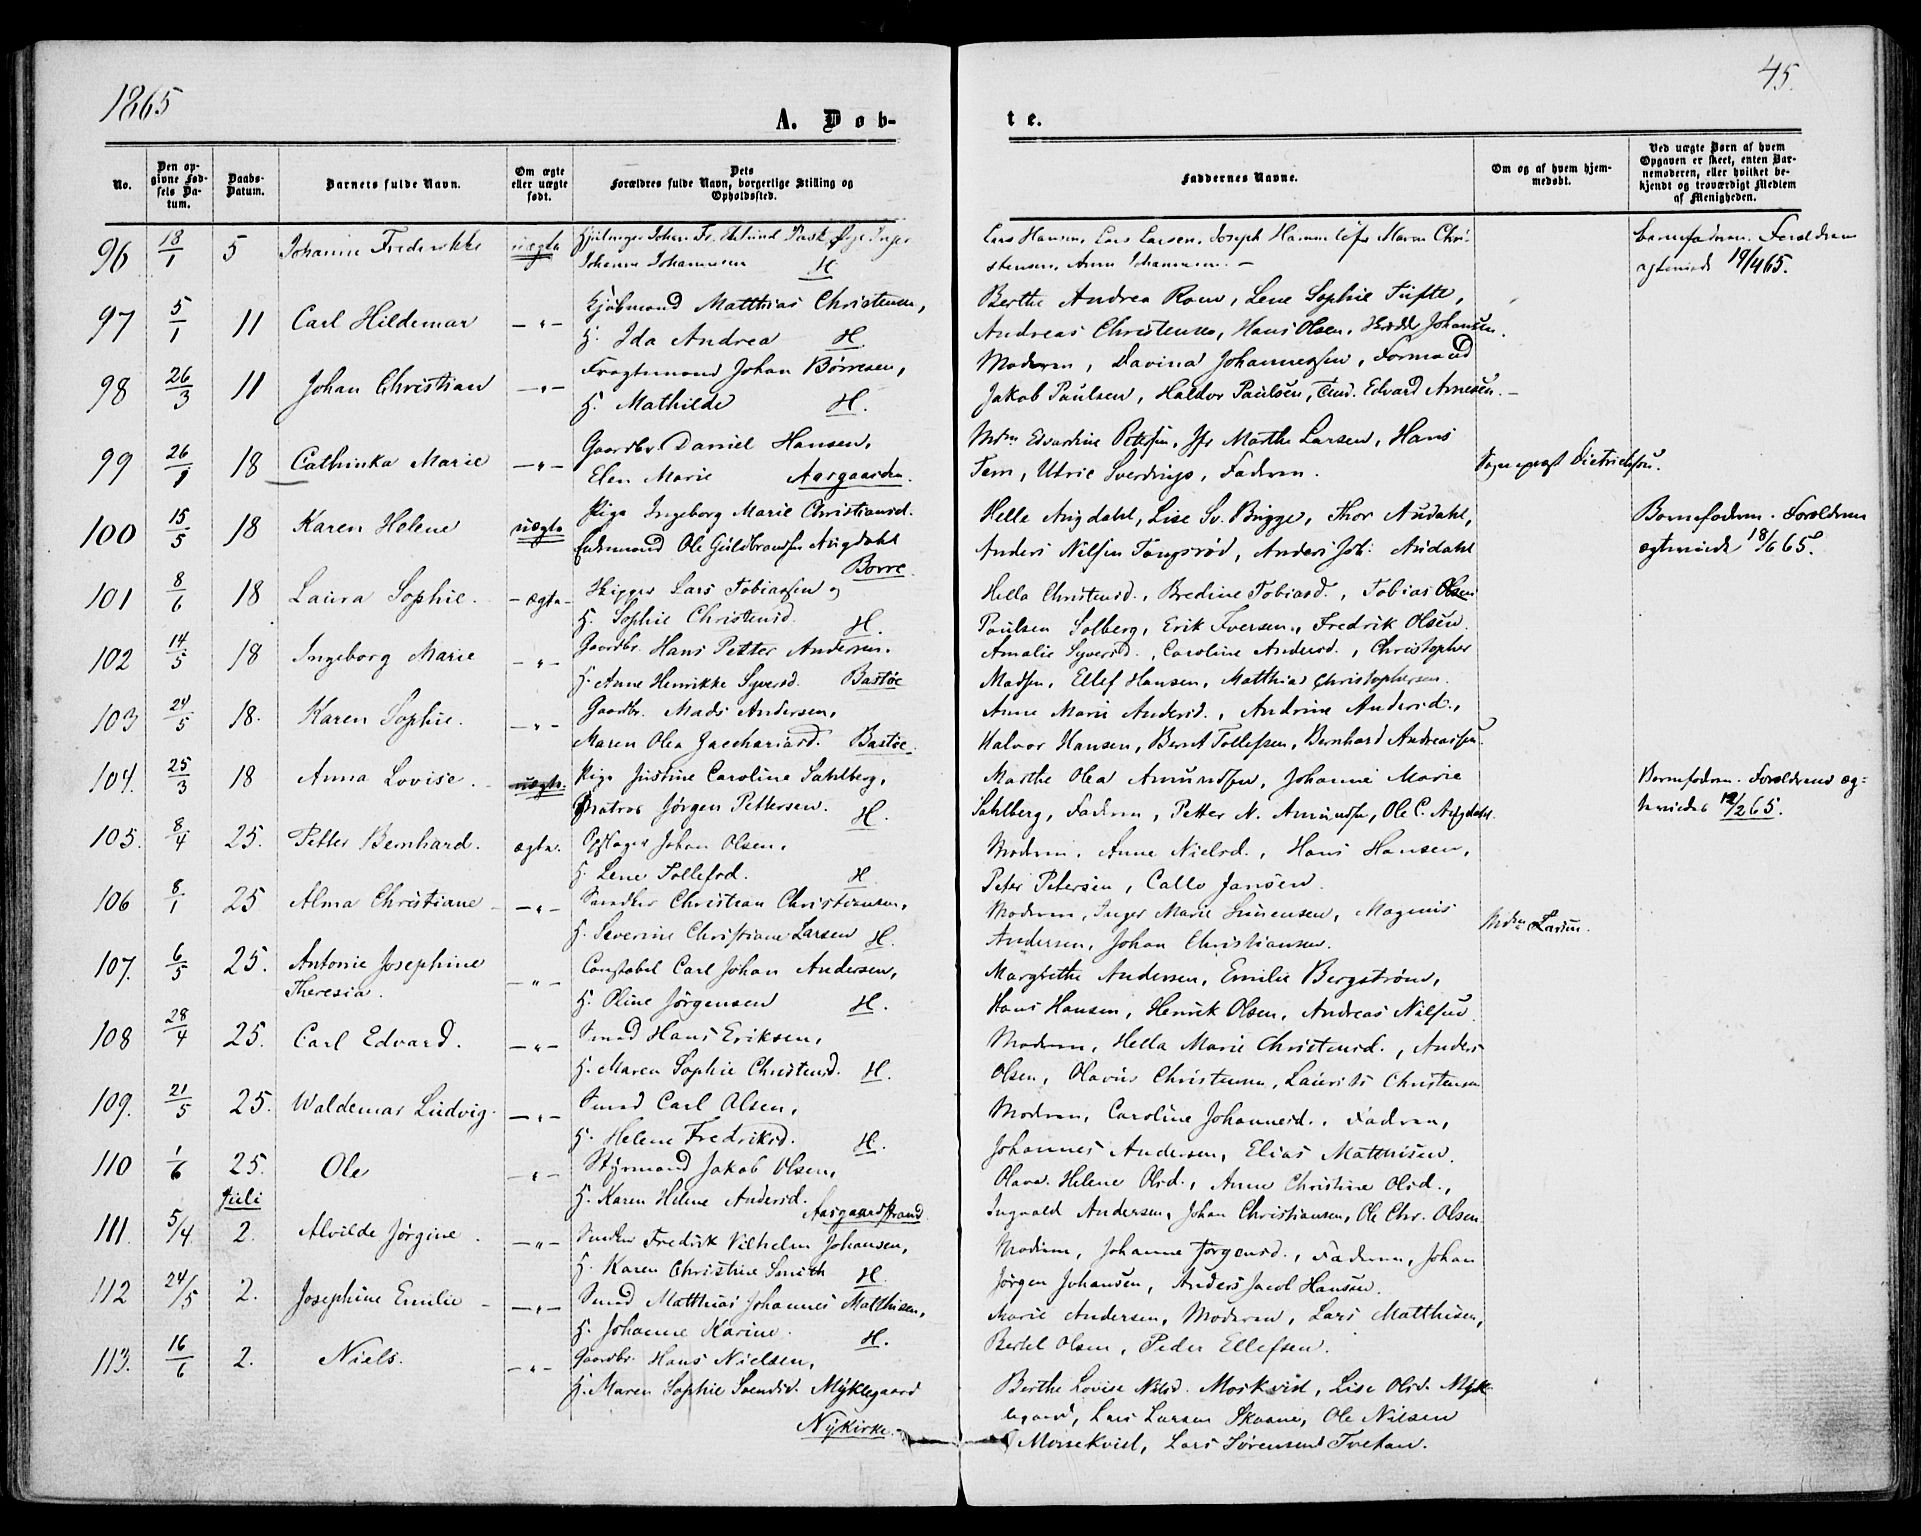 1865
45.
A. Døb-
te.
No.
Den opgivne Fødsels Datum.
Daabs-Datum.
Barnets fulde Navn.
Om ægte eller uægte født.
Dets Forældres fulde Navn, borgerlige Stilling og Opholdssted.
Faddernes Navne.
Om og af hvem hjemmedøbt.
Ved uægte Børn af hvem Opgaven er skeet, enten Barnemoderen, eller hvilket bekjendt og troværdigt Medlem af Menigheden.
96 18/1 5 Johanne Frederikke uægte Johan Fr. Inger Lars Hansen, Lars Larsen, Joseph Maren Chri- Forældrene
Johanne Johannesen H. stensen, Anne Johannesen. 19/4 65.
97 5/1 11 Carl Hildemar —"— Kjøbmand Matthias Christensen, Berthe Andrea Lene Sophie Tufte,
H. Ida Andrea H. Andreas Christensen, Hans Olsen, Johansen.
98 26/3 11 Johan Christian —"— Fragtemand Johan Børresen, Moderen, Davina Johannessen, Formand
H. Mathilde H. Jakob Paulsen, Haldor Paulsen, Edvard Arnesen.
99 26/1 18 Cathinka Marie —"— Gaardbr. Daniel Hansen, Mdm Edvardine Petersen, Jfr Marthe Larsen, Hans
Elen Marie Aasgaarden. Ulric Sverdrup, Faderen. Sogneprest Dietrichson.
100 15/5 18 Karen Helene uægte Pige Ingeborg Marie Christiansd. Helle Augdahl, Lise Sv. Brygge, Thor Audahl, Barnefadren. Forældrene
Ole Guldbrandsen Augdahl Anders Nilsen Anders Joh. Audahl ægteviede 18/6 65.
Borre.
101 8/6 18 Laura Sophie. — ægte — Skipper Lars Tobiassen og Hella Christensd., Bredine Tobiasd., Tobias Olsen
H. Sophie Christensd. H. Paulsen Solberg, Erik Iversen, Fredrik Olsen.
102 14/5 18 Ingeborg Marie —"— Gaardbr. Hans Petter Andersen. Amalie Syversd., Caroline Andersd., Christopher
H. Anne Henrikke Syversd. Bastøe Madsen, Ellef Hansen, Matthias Christophersen.
103 24/5 18. Karen Sophie. —"— Gaardbr. Mads Andersen, Anne Marie Andersd., Andrine Andersd.,
Maren Olea Zacchariasd. Bastøe. Halvor Hansen, Bernt Tollefsen, Bernhard Andreassen.
104. 25/3 18 Anna Lovise. uægte. Pige Justine Caroline Sahlberg, Marthe Olea Amundsen, Johanne Marie Barnefadren. Forældrene æg=
Matros Jørgen Pettersen. H. Sahlberg, Faderen, Petter N. Amundsen, Ole C. Augdahl. teviedes 12/2 65.
105. 8/4 25. Petter Bernhard. ægte. Opslager Johan Olsen, Moderen, Anne Nielsd., Hans Hansen,
H. Lene Tollefsd. H. Peter Petersen, Calle Jansen.
106 8/1 25 Alma Christiane —"— Christian Christiansen, Moderen, Inger Marie Magnus
H. Severine Christiane Larsen H. Andersen, Johan Christiansen. Mdm Larsen.
107. 6/5 25. Antonie Josephine —"— Constabel Carl Johan Andersen, Margrethe Andersen, Emilie Bergstrøm,
Theresia. H. Oline Jørgensen H. Hans Hansen, Henrik Olsen, Andreas Nilsen.
108 28/4 25. Carl Edvard. —"— Smed Hans Eriksen, Moderen, Hella Marie Christensd., Anders
H. Maren Sophie Christensd. H. Olsen, Olavus Christensen, Laurits Christensen
109. 21/5 25. Waldemar Ludvig. —"— Smed Carl Olsen, Moderen, Caroline Johannesd., Faderen,
H. Helene Fredriksd. H. Johannes Andersen, Elias Matthisen.
110 1/6 25. Ole —"— Styrmand Jakob Olsen, Olava Helene Olsd., Anne Christine Olsd.,
Juli H. Karen Helene Andersd. Aasgaardstrand Ingvald Andersen, Johan Christiansen, Ole Chr. Olsen.
111. 5/4 2. Alvilde Jørgine. —"— Fredrik Vilhelm Johansen, Moderen, Johanne Jørgensd., Faderen, Johan
H. Karen Christine Smith H. Jørgen Johansen, Anders Jacob Hansen.
112 24/5 2. Josephine Emilie —"— Smed Matthias Johannes Matthisen, Marie Andersen, Moderen, Lars Matthisen,
H. Johanne Karine. H. Bertel Olsen, Peder Ellefsen.
113. 16/6 2. Niels. —"— Gaardbr. Hans Nielsen, Berthe Lovise Nilsd. Morkvist, Lise Olsd. Myk-
H. Maren Sophie Svendsd. Myklegaard legaard, Lars Larsen Skaane, Ole Nilsen
Nykirke. Morsekvist, Lars Sørensen Tvetan.